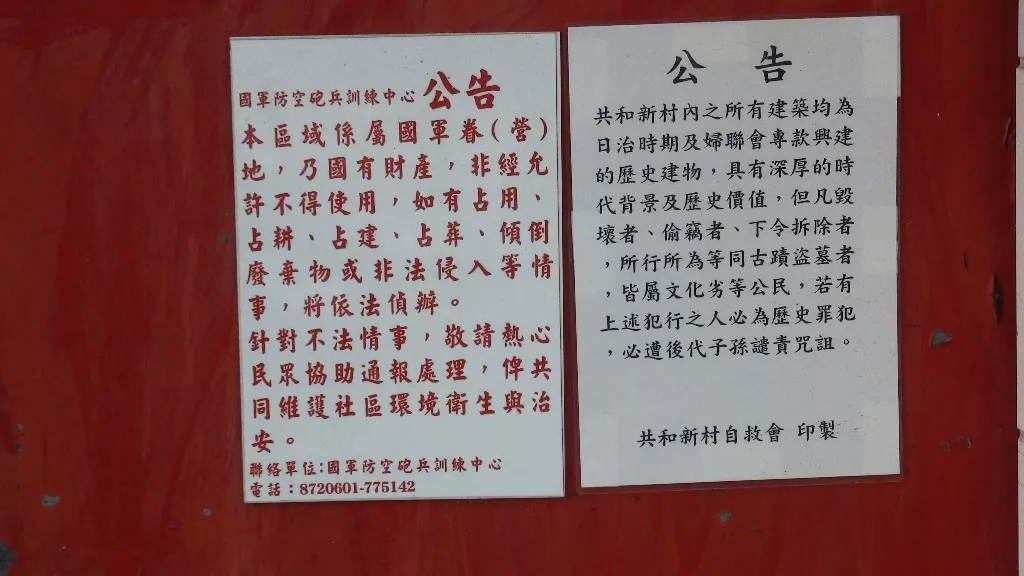 國軍防空砲兵訓練中心 公告
本區域係屬國軍眷(營)
地，乃國有財產，非經允
許不得使用，如有占用、
占耕、占建、占葬、傾倒
廢棄物或非法侵入等情
事，將依法偵辦。
針對不法情事，敬請熱心
民眾協助通報處理，俾共
同維護社區環境衛生與治
安。
聯絡單位:國軍防空砲兵訓練中心
電話：8720601-775142
公 告
共和新村內之所有建築均為
日治時期及婦聯會專款興建
的歷史建物，具有深厚的時
代背景及歷史價值，但凡毀
壞者、偷竊者、下令拆除者
，所行所為等同古蹟盜墓者
，皆屬文化劣等公民，若有
上述犯行之人必為歷史罪犯
，必遭後代子孫譴責咒詛。
共和新村自救會 印製